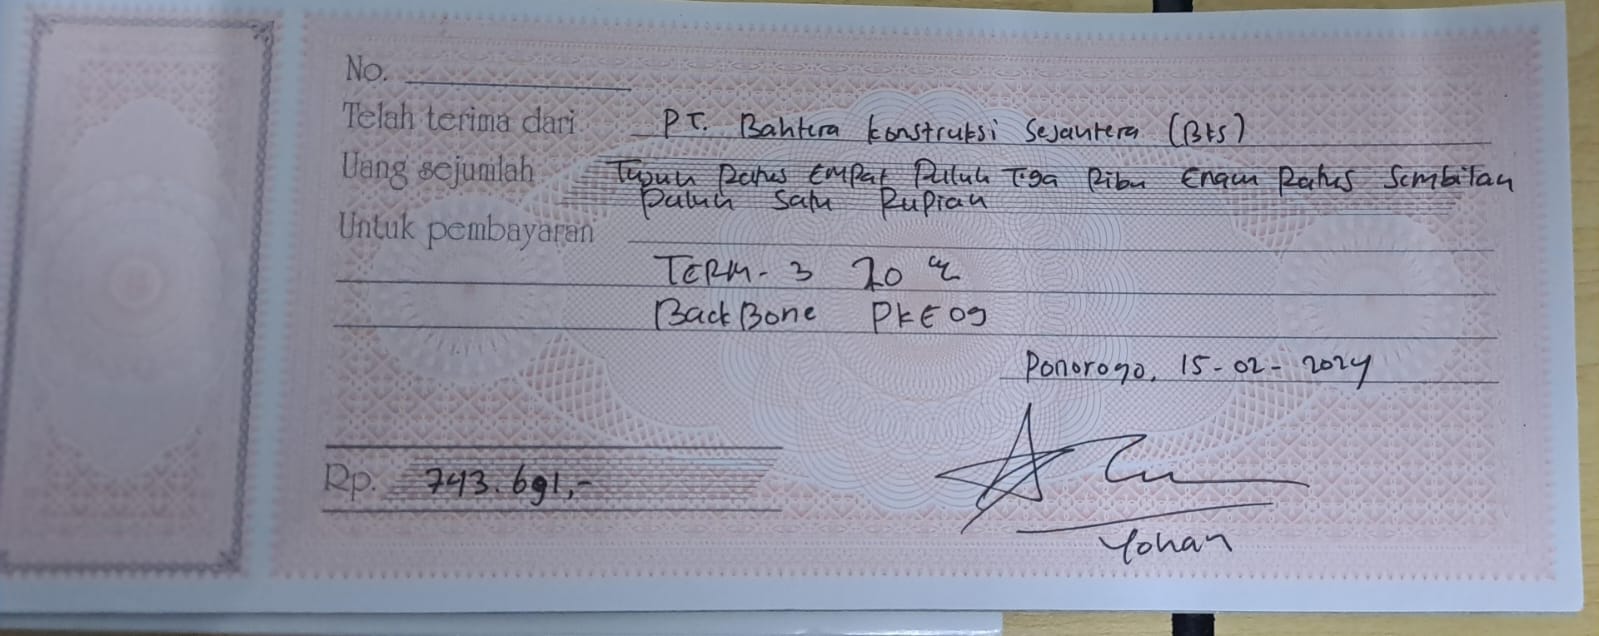 No.
Telah terima dari PT. Bahtera Konstruksi Sejahtera (BKS)
Uang sejumlah Tujuh Ratus Empat Puluh Tiga Ribu Enam Ratus Sembilan
Puluh Satu Rupiah
Untuk pembayaran
TERM-3 20 %
BackBone PKE09
Ponorogo, 15-02-2024
Rp. 743.691,-
Yohan